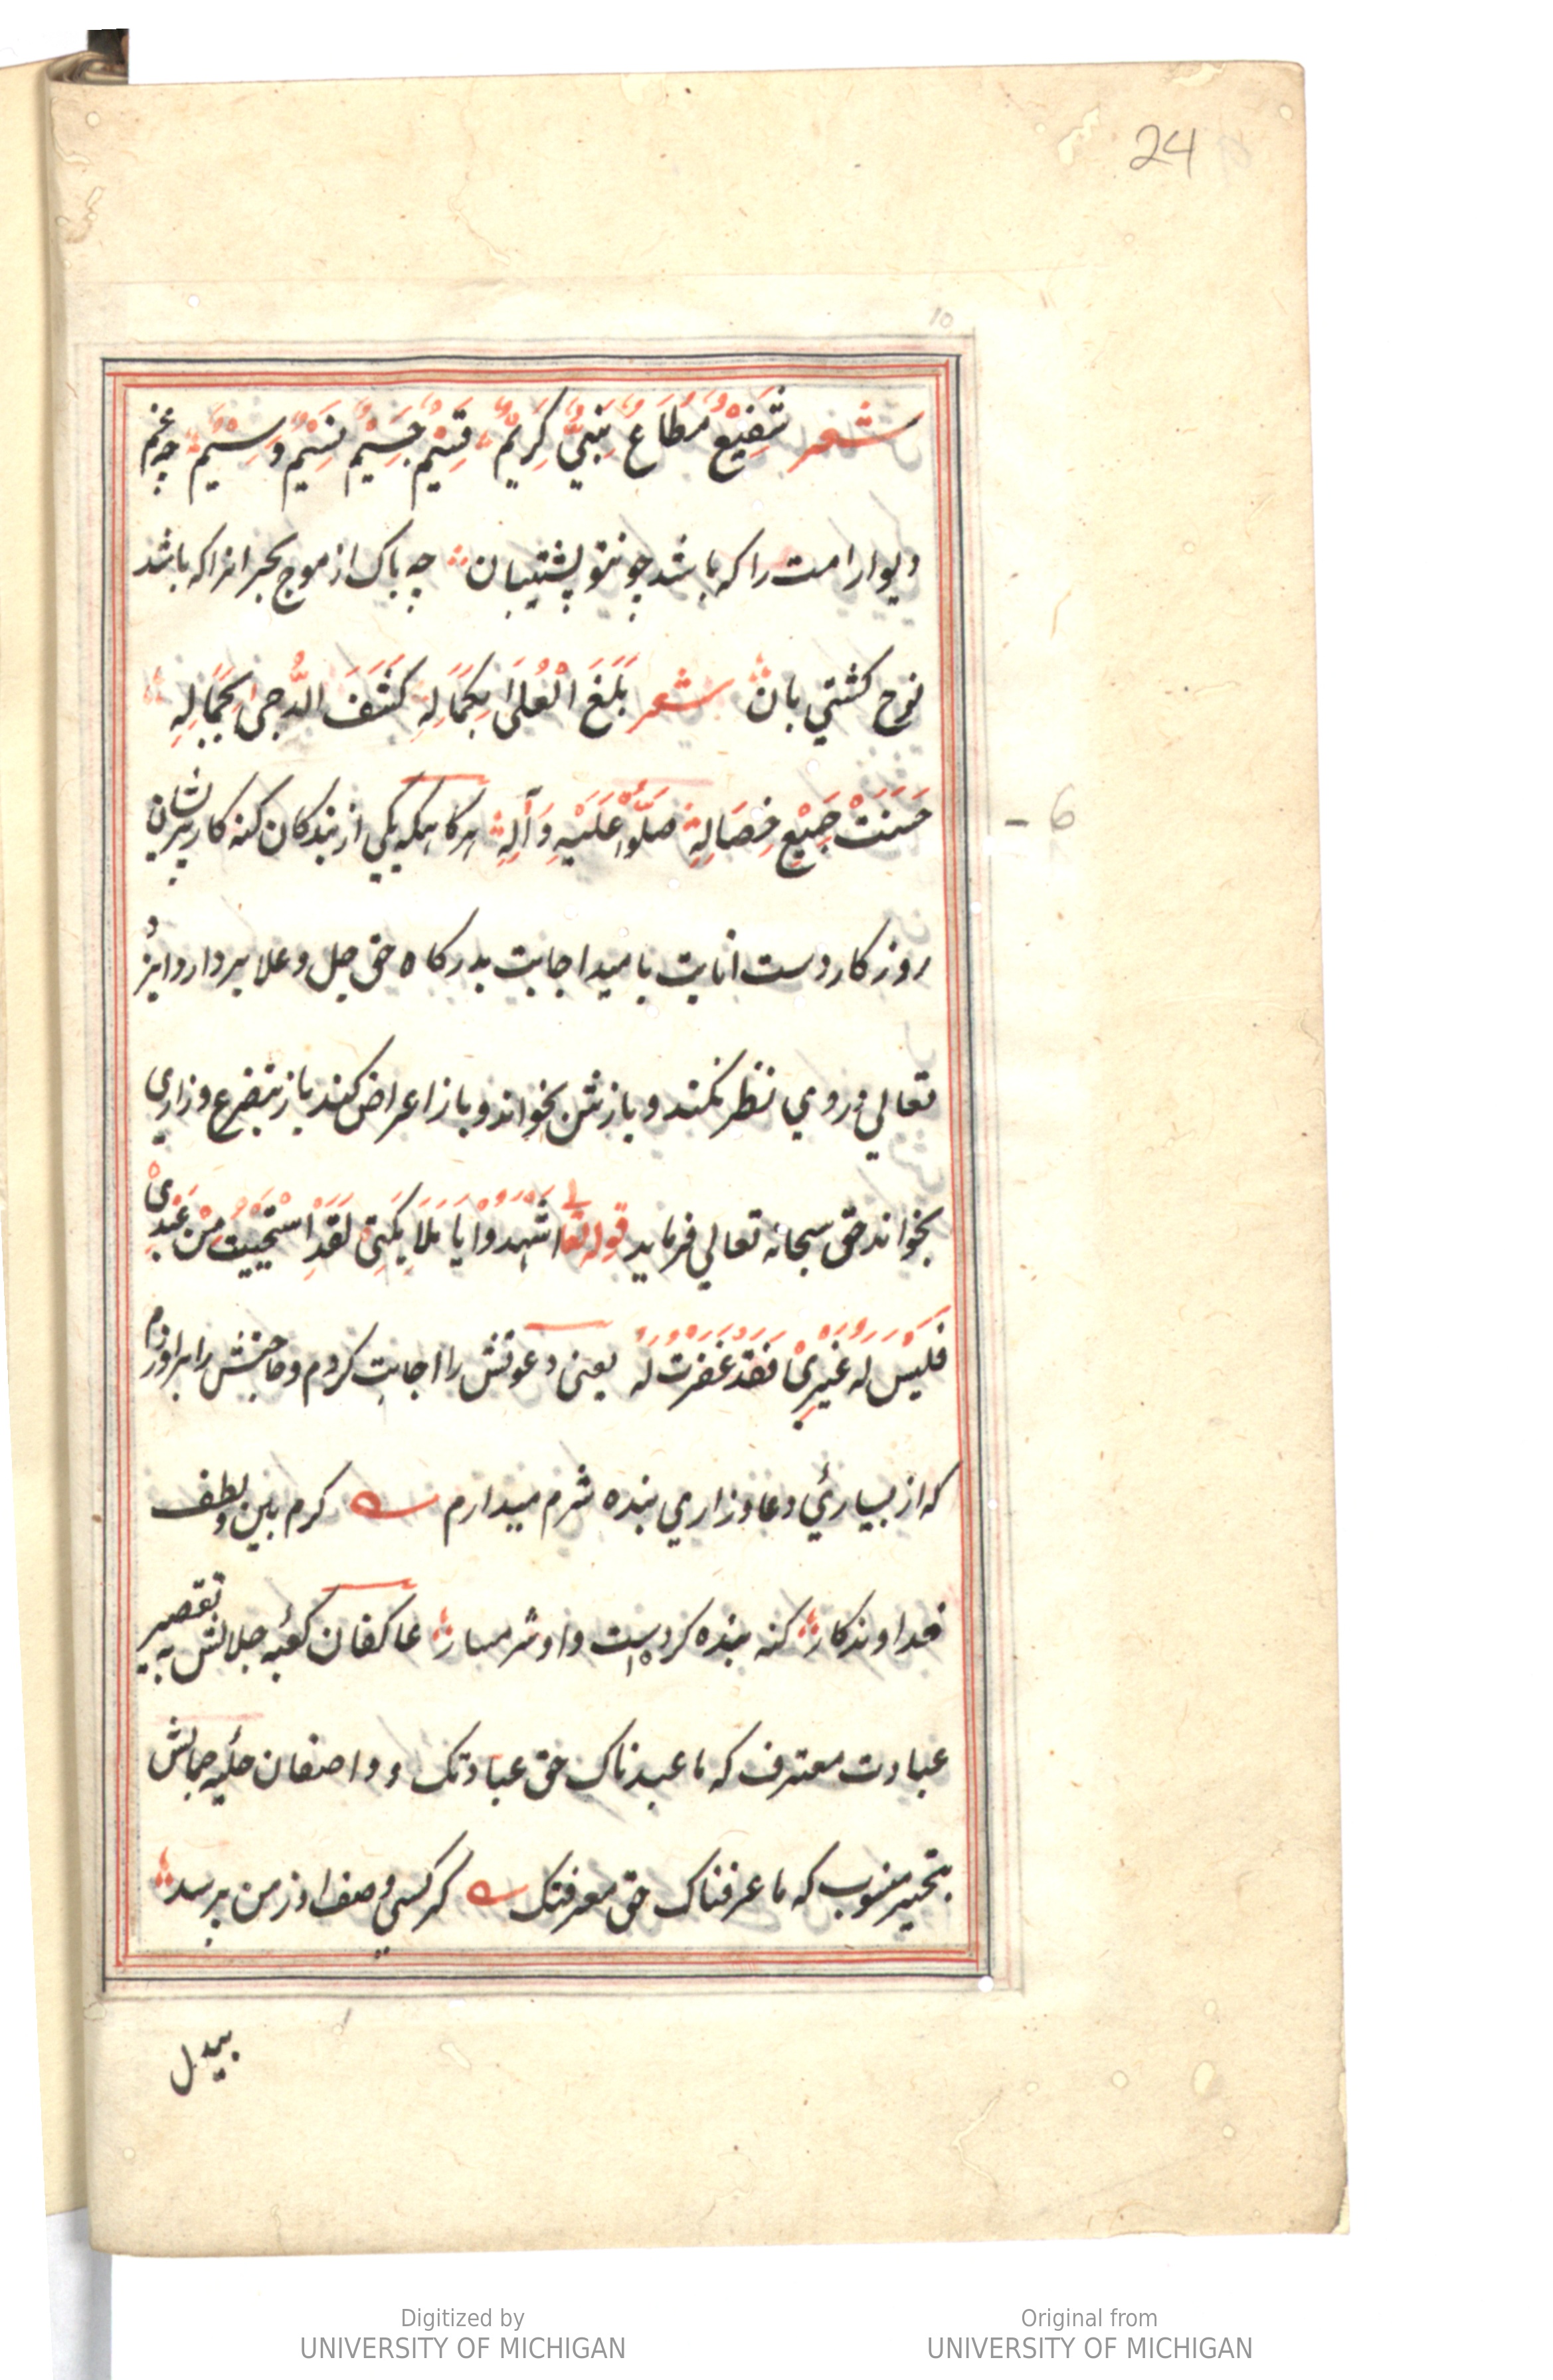 24
10
شعر شَفِيْعٌ مُطَاعٌ نَبِيٌّ كَرِيْمٌ قَسِيْمٌ جَسِيْمٌ نَسِيْمٌ وَسِيْمٌ چه غم
ديوار امت را كه باشد چون تو پشتيبان چه باك از موج بحر انرا كه باشد
نوح كشتي بان شعر بَلَغَ الْعُلَىٰ بِكَمَالِهِ كَشَفَ الدُّجىٰ بِجَمَالِهِ
حَسَنَتْ جَمِيْعُ خِصَالِهِ صَلُّوْا عَلَيْهِ وَآلِهِ هركاهيكه يكي از بندكان كنه كار پريشان
روزكار دست انابت باميد اجابت بدركاه حق جل و علا بردارد ايزد
تعالي درومي نظر نكند و بازش بخواند و باز اعراض كند باز بتضرع و زاري
بخواند حق سبحانه تعالي فرمايد قوله تعا اشْهَدُوْا يَا مَلَايِكَتِيْ لَقَدِ اسْتَحْيَيْتُ مِنْ عَبْدِيْ
فَلَيْسَ لَهُ غَيْرِيْ فَقَدْ غَفَرْتُ لَهُ يعنى دعوتش را اجابت كردم و حاجتش را براوردم
كه از بسيارئِ دعا و زاري بنده شرم ميدارم كرم بين و لطف
خداوندكار كنه بنده كردست و او شرمسار عاكفان كعبه جلالش به تقصير
عبادت معترف كه ما عبدناك حق عبادتك و واصفان حليه جمالش
بتحير منسوب كه ما عرفناك حق معرفتك كر كسي وصف او ز من پرسد
بيدل
- 6
Digitized by
UNIVERSITY OF MICHIGAN
Original from
UNIVERSITY OF MICHIGAN